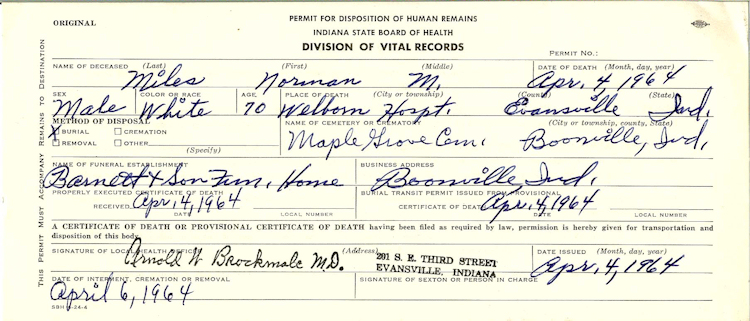 ORIGINAL
PERMIT FOR DISPOSITION OF HUMAN REMAINS
INDIANA STATE BOARD OF HEALTH
DIVISION OF VITAL RECORDS
PERMIT NO.:
NAME OF DECEASED (Last) (First) (Middle) DATE OF DEATH (Month, day, year)
Miles Norman M. Apr. 4, 1964
SEX COLOR OR RACE AGE PLACE OF DEATH (City or township) (County) (State)
Male White 70 Welborn Hospt. Evansville Ind.
METHOD OF DISPOSAL NAME OF CEMETERY OR CREMATORY (City or township, county, State)
X BURIAL CREMATION
REMOVAL OTHER
(Specify)
Maple Grove Cem. Boonville, Ind.
NAME OF FUNERAL ESTABLISHMENT BUSINESS ADDRESS
Barnett & Son Fun. Home Boonville, Ind.
PROPERLY EXECUTED CERTIFICATE OF DEATH BURIAL TRANSIT PERMIT ISSUED FROM PROVISIONAL
RECEIVED Apr. 4, 1964 CERTIFICATE OF DEATH Apr. 4, 1964
DATE LOCAL NUMBER DATE LOCAL NUMBER
A CERTIFICATE OF DEATH OR PROVISIONAL CERTIFICATE OF DEATH having been filed as required by law, permission is hereby given for transportation and
disposition of this body.
SIGNATURE OF LOCAL HEALTH OFFICER (Address) DATE ISSUED (Month, day, year)
Arnold W Brockmole M.D. 201 S. E. THIRD STREET
EVANSVILLE, INDIANA Apr. 4, 1964
DATE OF INTERMENT, CREMATION OR REMOVAL SIGNATURE OF SEXTON OR PERSON IN CHARGE
April 6, 1964
THIS PERMIT MUST ACCOMPANY REMAINS TO DESTINATION